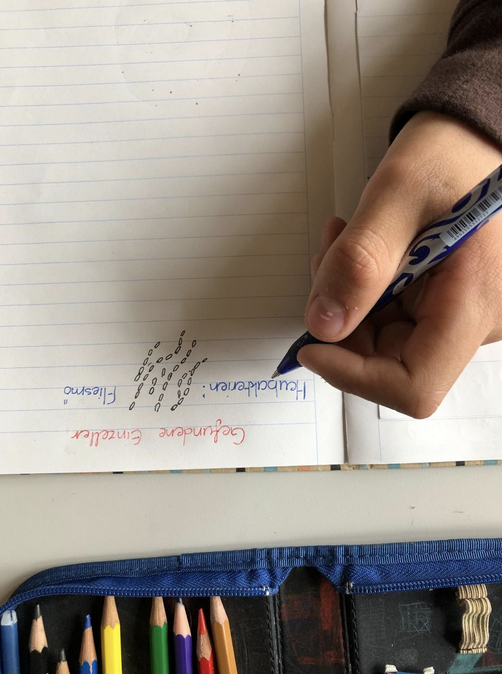 Gefundene Einzeller
Heubakterien: Fliesmo